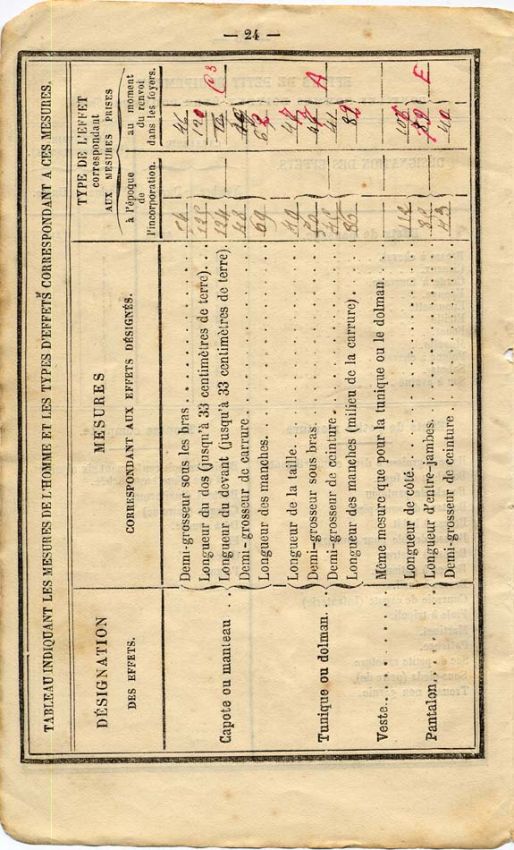 — 24 —
TABLEAU INDIQUANT LES MESURES DE L'HOMME ET LES TYPES D'EFFETS CORRESPONDANT A CES MESURES.
DÉSIGNATION
DES EFFETS.
MESURES
CORRESPONDANT AUX EFFETS DÉSIGNÉS.
TYPE DE L'EFFET
correspondant
AUX MESURES PRISES
à l'époque
de
l'incorporation.
au moment
du renvoi
dans les foyers.
Capote ou manteau . .
Demi-grosseur sous les bras . . . 46
Longueur du dos (jusqu'à 33 centimètres de terre). . . 120
Longueur du devant (jusqu'à 33 centimètres de terre). 124
Demi-grosseur de carrure . . . 
Longueur des manches. . . 69
Tunique ou dolman. . .
Longueur de la taille. . .
Demi-grosseur sous bras. . . A
Demi-grosseur de ceinture . . . 41
Longueur des manches (milieu de la carrure) . . . 86
Veste. . . Même mesure que pour la tunique ou le dolman.
Pantalon. . .
Longueur de côté. . . 112
Longueur d'entre-jambes. . . E
Demi-grosseur de ceinture . . . 43 40